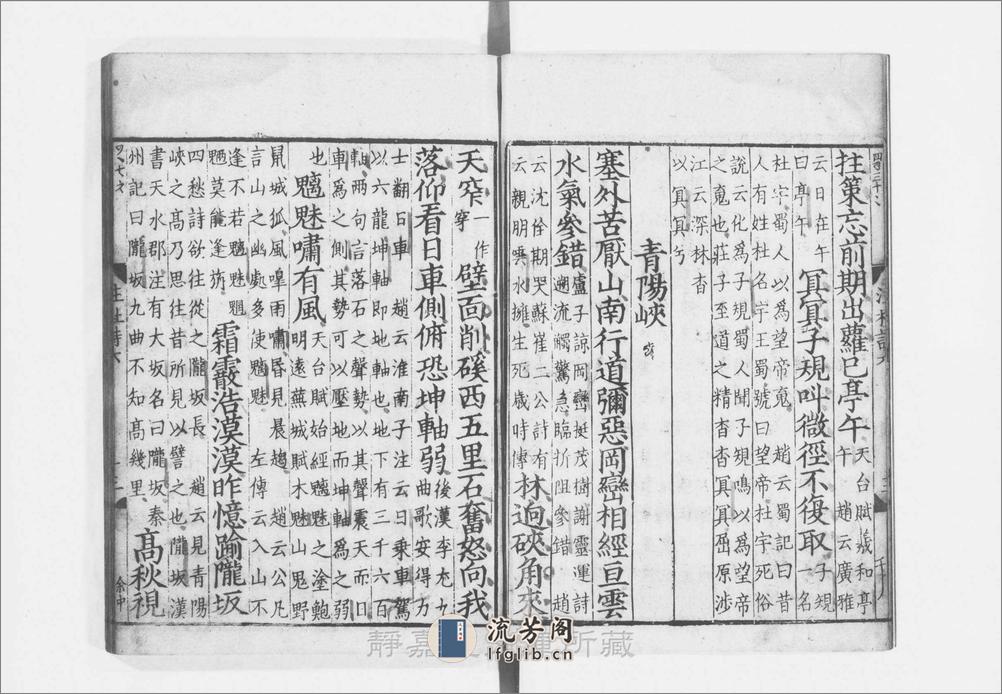 拄策忘前期出蘿已亭午天台賦羲和亭午趙云廣雅
云日在午曰亭午冥冥子規叫微徑不復取子規一名
杜宇蜀人以為望帝䰟趙云蜀記曰昔
人有姓杜名宇王蜀號曰望帝杜宇死俗
說云化為子規蜀人聞子規鳴以為望帝
之䰟也莊子至道之精杳杳冥冥屈原涉
江云深林杳以冥冥兮
青陽峽
塞外苦厭山南行道彌惡岡巒相經亘雲
水氣參錯盧子諒岡巒挺茂樹謝靈運詩遡流觸驚急臨折阻參錯趙
云沈佺期哭蘇崔二公詩有云親朋雲水擁生死歲時傳林逈硤角來
天窄一作窄壁面削磎西五里石奮怒向我
落仰看日車側俯恐坤軸弱後漢李尤九曲歌安得力
士翻日車趙云淮南子注云日乘車駕
以六龍坤軸即地軸也地下有三千六百
軸兩句言落石之聲勢以其聲震天而日
車為之側其勢可以壓地而坤軸為之弱
也魑魅嘯有風天台賦始經魑魅之塗鮑明遠蕪城賦木魅山鬼野
鼠城狐風嘷雨嘯昏見晨趨趙云公凡
言山之幽處多使魑魅左傳云入山不
逢不若魑魅魍魎莫能逢旃霜霰浩漠漠昨憶踰隴坂
四愁詩欲往從之隴坂長趙云見青陽
峽之高乃思往昔所見以譬之也隴坂漢
書天水郡注有大坂名曰隴坂秦
州記曰隴坂九曲不知高幾里高秋視
余中
靜嘉
所藏
流芳阁
lfglib.cn